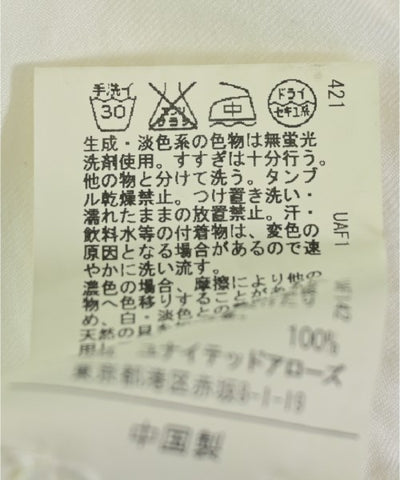 手洗イ
30
エンソ
サラシ
中
ドライ
セキユ系
生成・淡色系の色物は無蛍光
洗剤使用。すすぎは十分行う。
他の物と分けて洗う。タンブ
ル乾燥禁止。つけ置き洗い・
濡れたままの放置禁止。汗・
飲料水等の付着物は、変色の
原因となる場合があるので速
やかに洗い流す。
濃色の場合、摩擦により他の
物へ色移りすることが
め、白・淡色との
天然の貝を
用
421
UAF1
100%
ナイテッドアローズ
東京都港区赤坂8-1-19
中国製